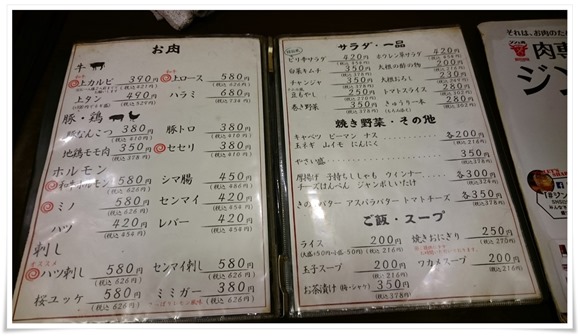 お肉
牛
上カルビ 390円
(税込 421円)
上ロース 580円
(税込 626円)
上タン 490円
(税込 529円)
ハラミ 680円
(税込 734円)
豚・鶏
豚なんこつ 380円
(税込 410円)
豚トロ 380円
(税込 410円)
地鶏モモ肉 350円
(税込 378円)
セセリ 380円
(税込 410円)
ホルモン
ホルモン 580円
(税込 626円)
シマ腸 450円
(税込 486円)
ミノ 580円
(税込 626円)
センマイ 420円
(税込 454円)
ハツ 420円
(税込 454円)
レバー 420円
(税込 454円)
刺し
オススメ
ハツ刺し 580円
(税込 626円)
センマイ刺し 580円
(税込 626円)
桜ユッケ 580円
(税込 626円)
ミミガー 380円
サラダ・一品
ピリ辛サラダ 420円
ホウレン草サラダ 420円
白菜キムチ 350円
大根の酢の物 200円
チャンジャ 350円
大根おろし 230円
豆もやし 250円
トマトスライス 280円
巻き野菜 350円
きゅうり一本 280円
焼き野菜・その他
キャベツ ピーマン ナス 各200円
玉ネギ ムイモ にんにく (税込 216円)
やさい盛 350円
(税込 378円)
厚揚げ 子持ちししゃも ウィンナー 各300円
チーズはんぺん ジャンボしいたけ (税込 324円)
きのこバター アスパラバター トマトチーズ 各350円
(税込 378円)
ご飯・スープ
ライス 200円
(税込 216円)
焼きおにぎり 250円
(税込 270円)
玉子スープ 200円
(税込 216円)
ワカメスープ 200円
(税込 216円)
お茶漬け (梅・シャケ) 350円
(税込 378円)
それは、お肉のため
肉専
ジン